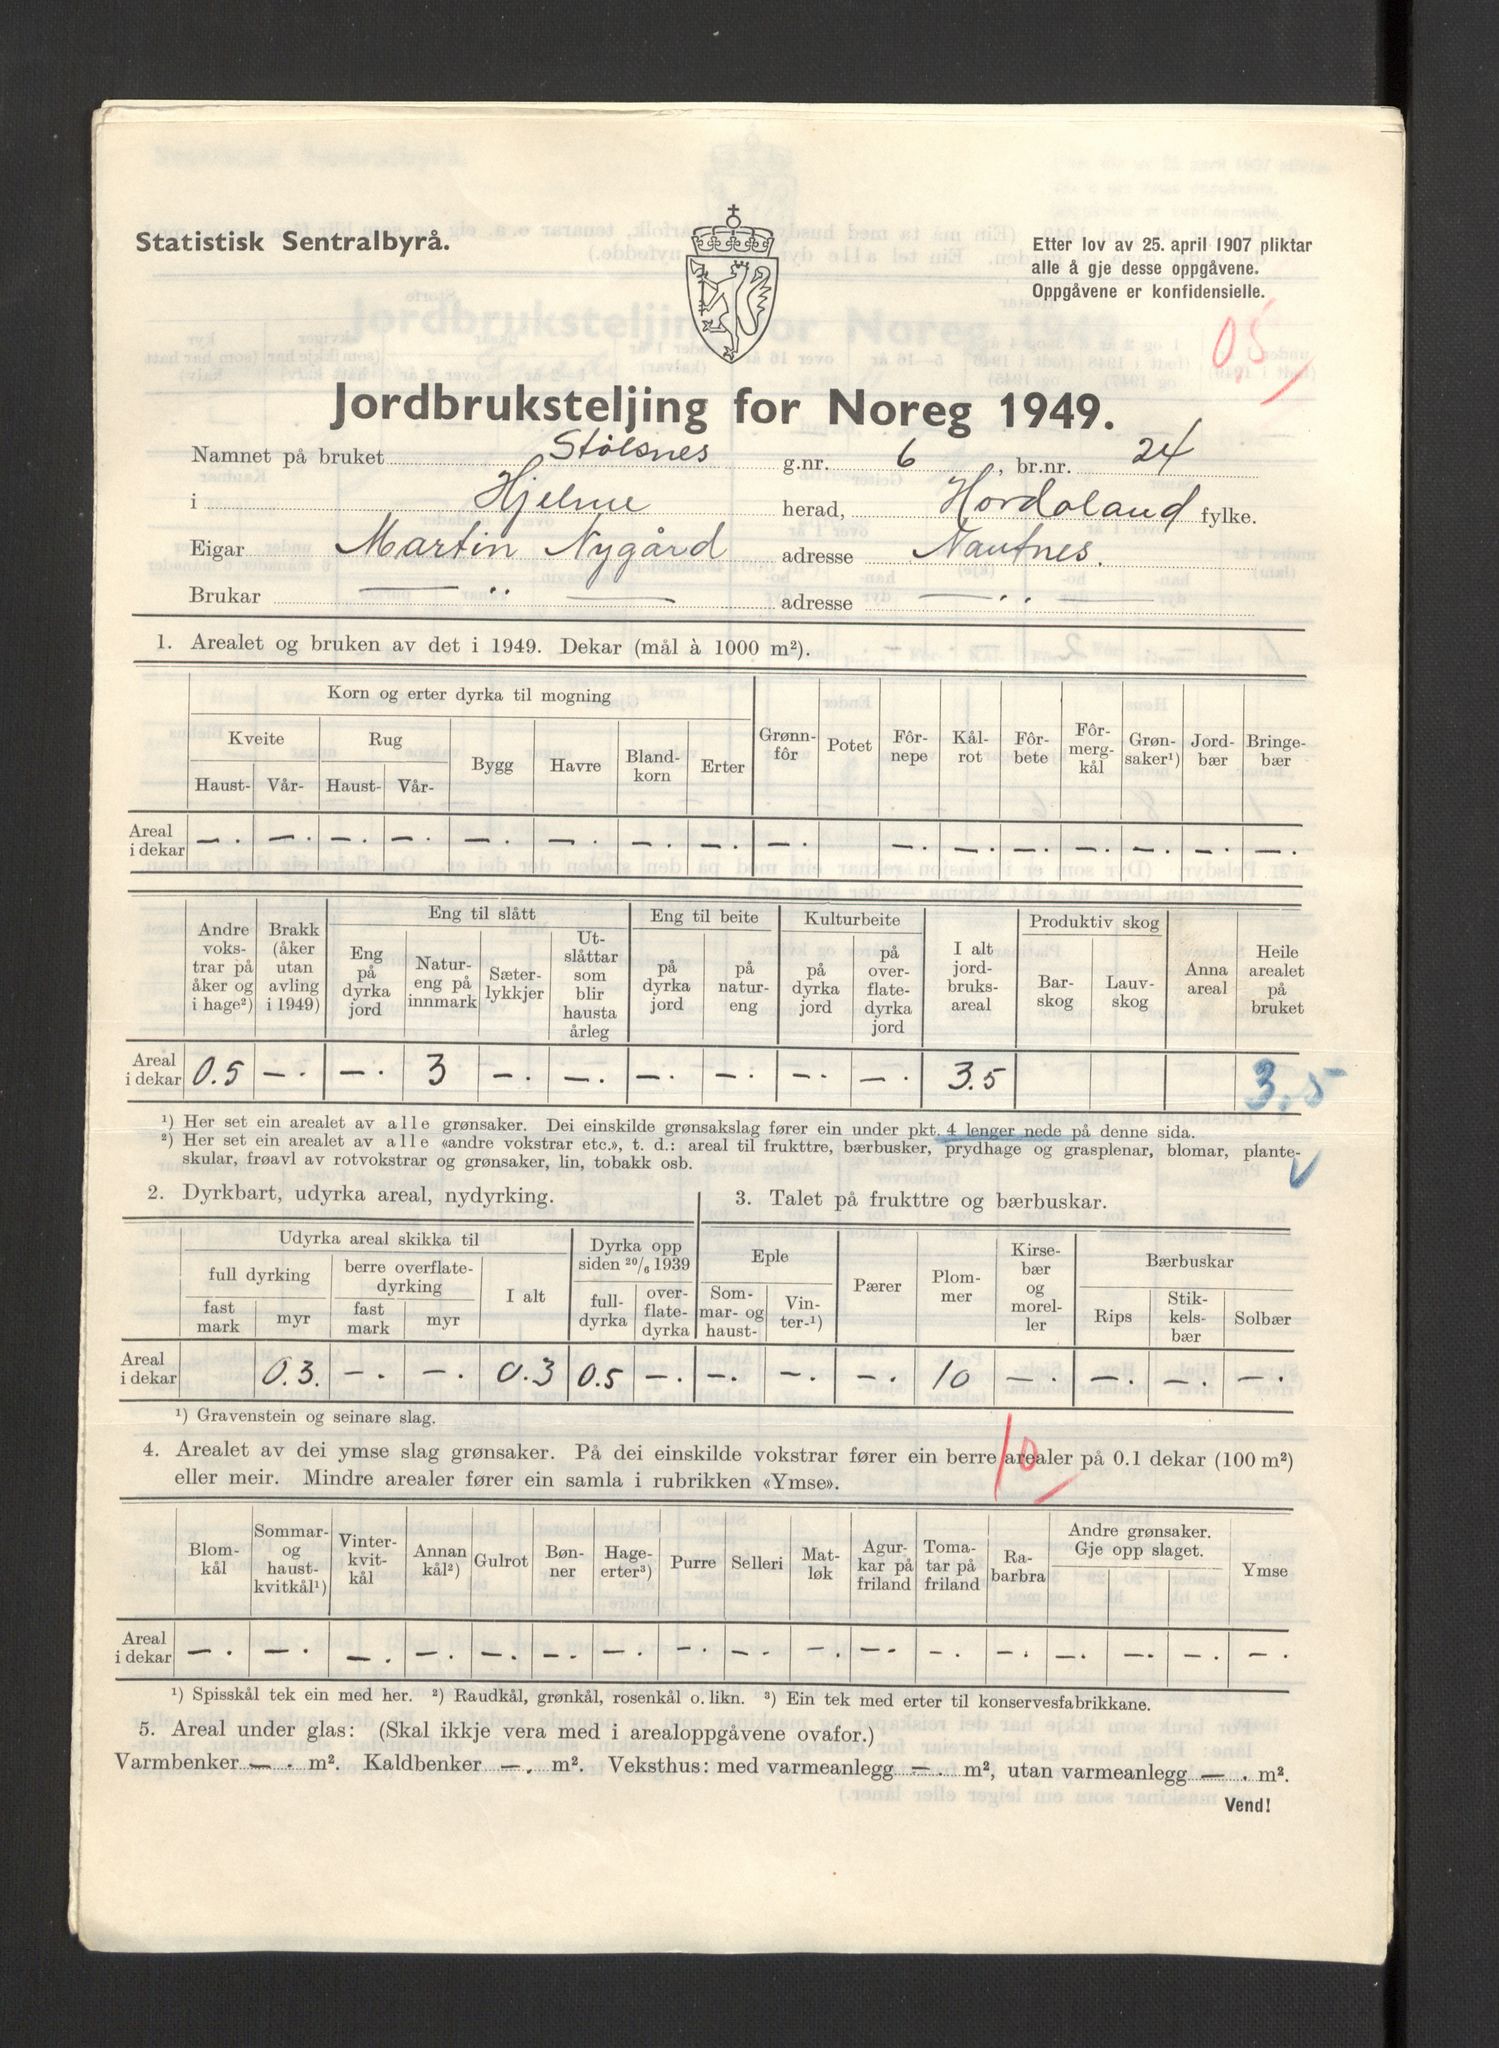 Statistisk Sentralbyrå.
Etter lov av 25. april 1907 pliktar
alle å gje desse oppgåvene.
Oppgåvene er konfidensielle.
05
Jordbruksteljing for Noreg 1949.
Namnet på bruket Stølsnes g.nr. 6, br.nr. 24
i Hjelme herad, Hordaland fylke.
Eigar Martin Nygård adresse Nautnes.
Brukar — ,, — adresse — ,, —
1. Arealet og bruken av det i 1949. Dekar (mål à 1000 m²).
Korn og erter dyrka til mogning
Kveite Rug Bygg Havre Bland-korn Erter Grønn-fôr Potet Fôr-nepe Kål-rot Fôr-bete Fôr-merg-kål Grøn-saker¹) Jord-bær Bringe-bær
Haust- Vår- Haust- Vår-
Areal i dekar —. —. —. —. —. —. —. —. —. —. —. —. —. —. —. —. —.
Andre voks-trar på åker og i hage²) Brakk (åker utan avling i 1949) Eng til slått Eng til beite Kulturbeite I alt jord-bruks-areal Produktiv skog Anna areal Heile arealet på bruket
Eng på dyrka jord Natur-eng på innmark Sæter-lykkjer Ut-slåttar som blir hausta årleg på dyrka jord på natur-eng på dyrka jord på over-flate-dyrka jord Bar-skog Lauv-skog
Areal i dekar 0.5 —. —. 3 —. —. —. —. —. —. 3.5 3.5
¹) Her set ein arealet av alle grønsaker. Dei einskilde grønsakslag fører ein under pkt. 4 lenger nede på denne sida.
²) Her set ein arealet av alle «andre vokstrar etc.», t. d.: areal til frukttre, bærbusker, prydhage og grasplenar, blomar, plante-
skular, frøavl av rotvokstrar og grønsaker, lin, tobakk osb.
2. Dyrkbart, udyrka areal, nydyrking.
Udyrka areal skikka til Dyrka opp siden 20/6 1939
full dyrking berre overflate-dyrking I alt full-dyrka over-flate-dyrka
fast mark myr fast mark myr
Areal i dekar 0.3. —. —. 0.3 0.5 —.
3. Talet på frukttre og bærbuskar.
Eple Pærer Plom-mer Kirse-bær og morel-ler Bærbuskar
Som-mar- og haust- Vin-ter-¹) Rips Stik-kels-bær Solbær
—. —. —. 10 —. —. —. —.
¹) Gravenstein og seinare slag.
10
4. Arealet av dei ymse slag grønsaker. På dei einskilde vokstrar fører ein berre arealer på 0.1 dekar (100 m²)
eller meir. Mindre arealer fører ein samla i rubrikken «Ymse».
Blom-kål Sommar- og haust-kvitkål¹) Vinter-kvit-kål Annan kål²) Gulrot Bøn-ner Hage-erter³) Purre Selleri Mat-løk Agur-kar på friland Toma-tar på friland Ra-barbra Andre grønsaker. Gje opp slaget. Ymse
Areal i dekar —. —. —. —. —. —. —. —. —. —. —. —. —. —. —. —. —.
¹) Spisskål tek ein med her. ²) Raudkål, grønkål, rosenkål o. likn. ³) Ein tek med erter til konservesfabrikkane.
5. Areal under glas: (Skal ikkje vera med i arealoppgåvene ovafor.)
Varmbenker —. m². Kaldbenker —. m². Veksthus: med varmeanlegg —. m², utan varmeanlegg —. m².
Vend!